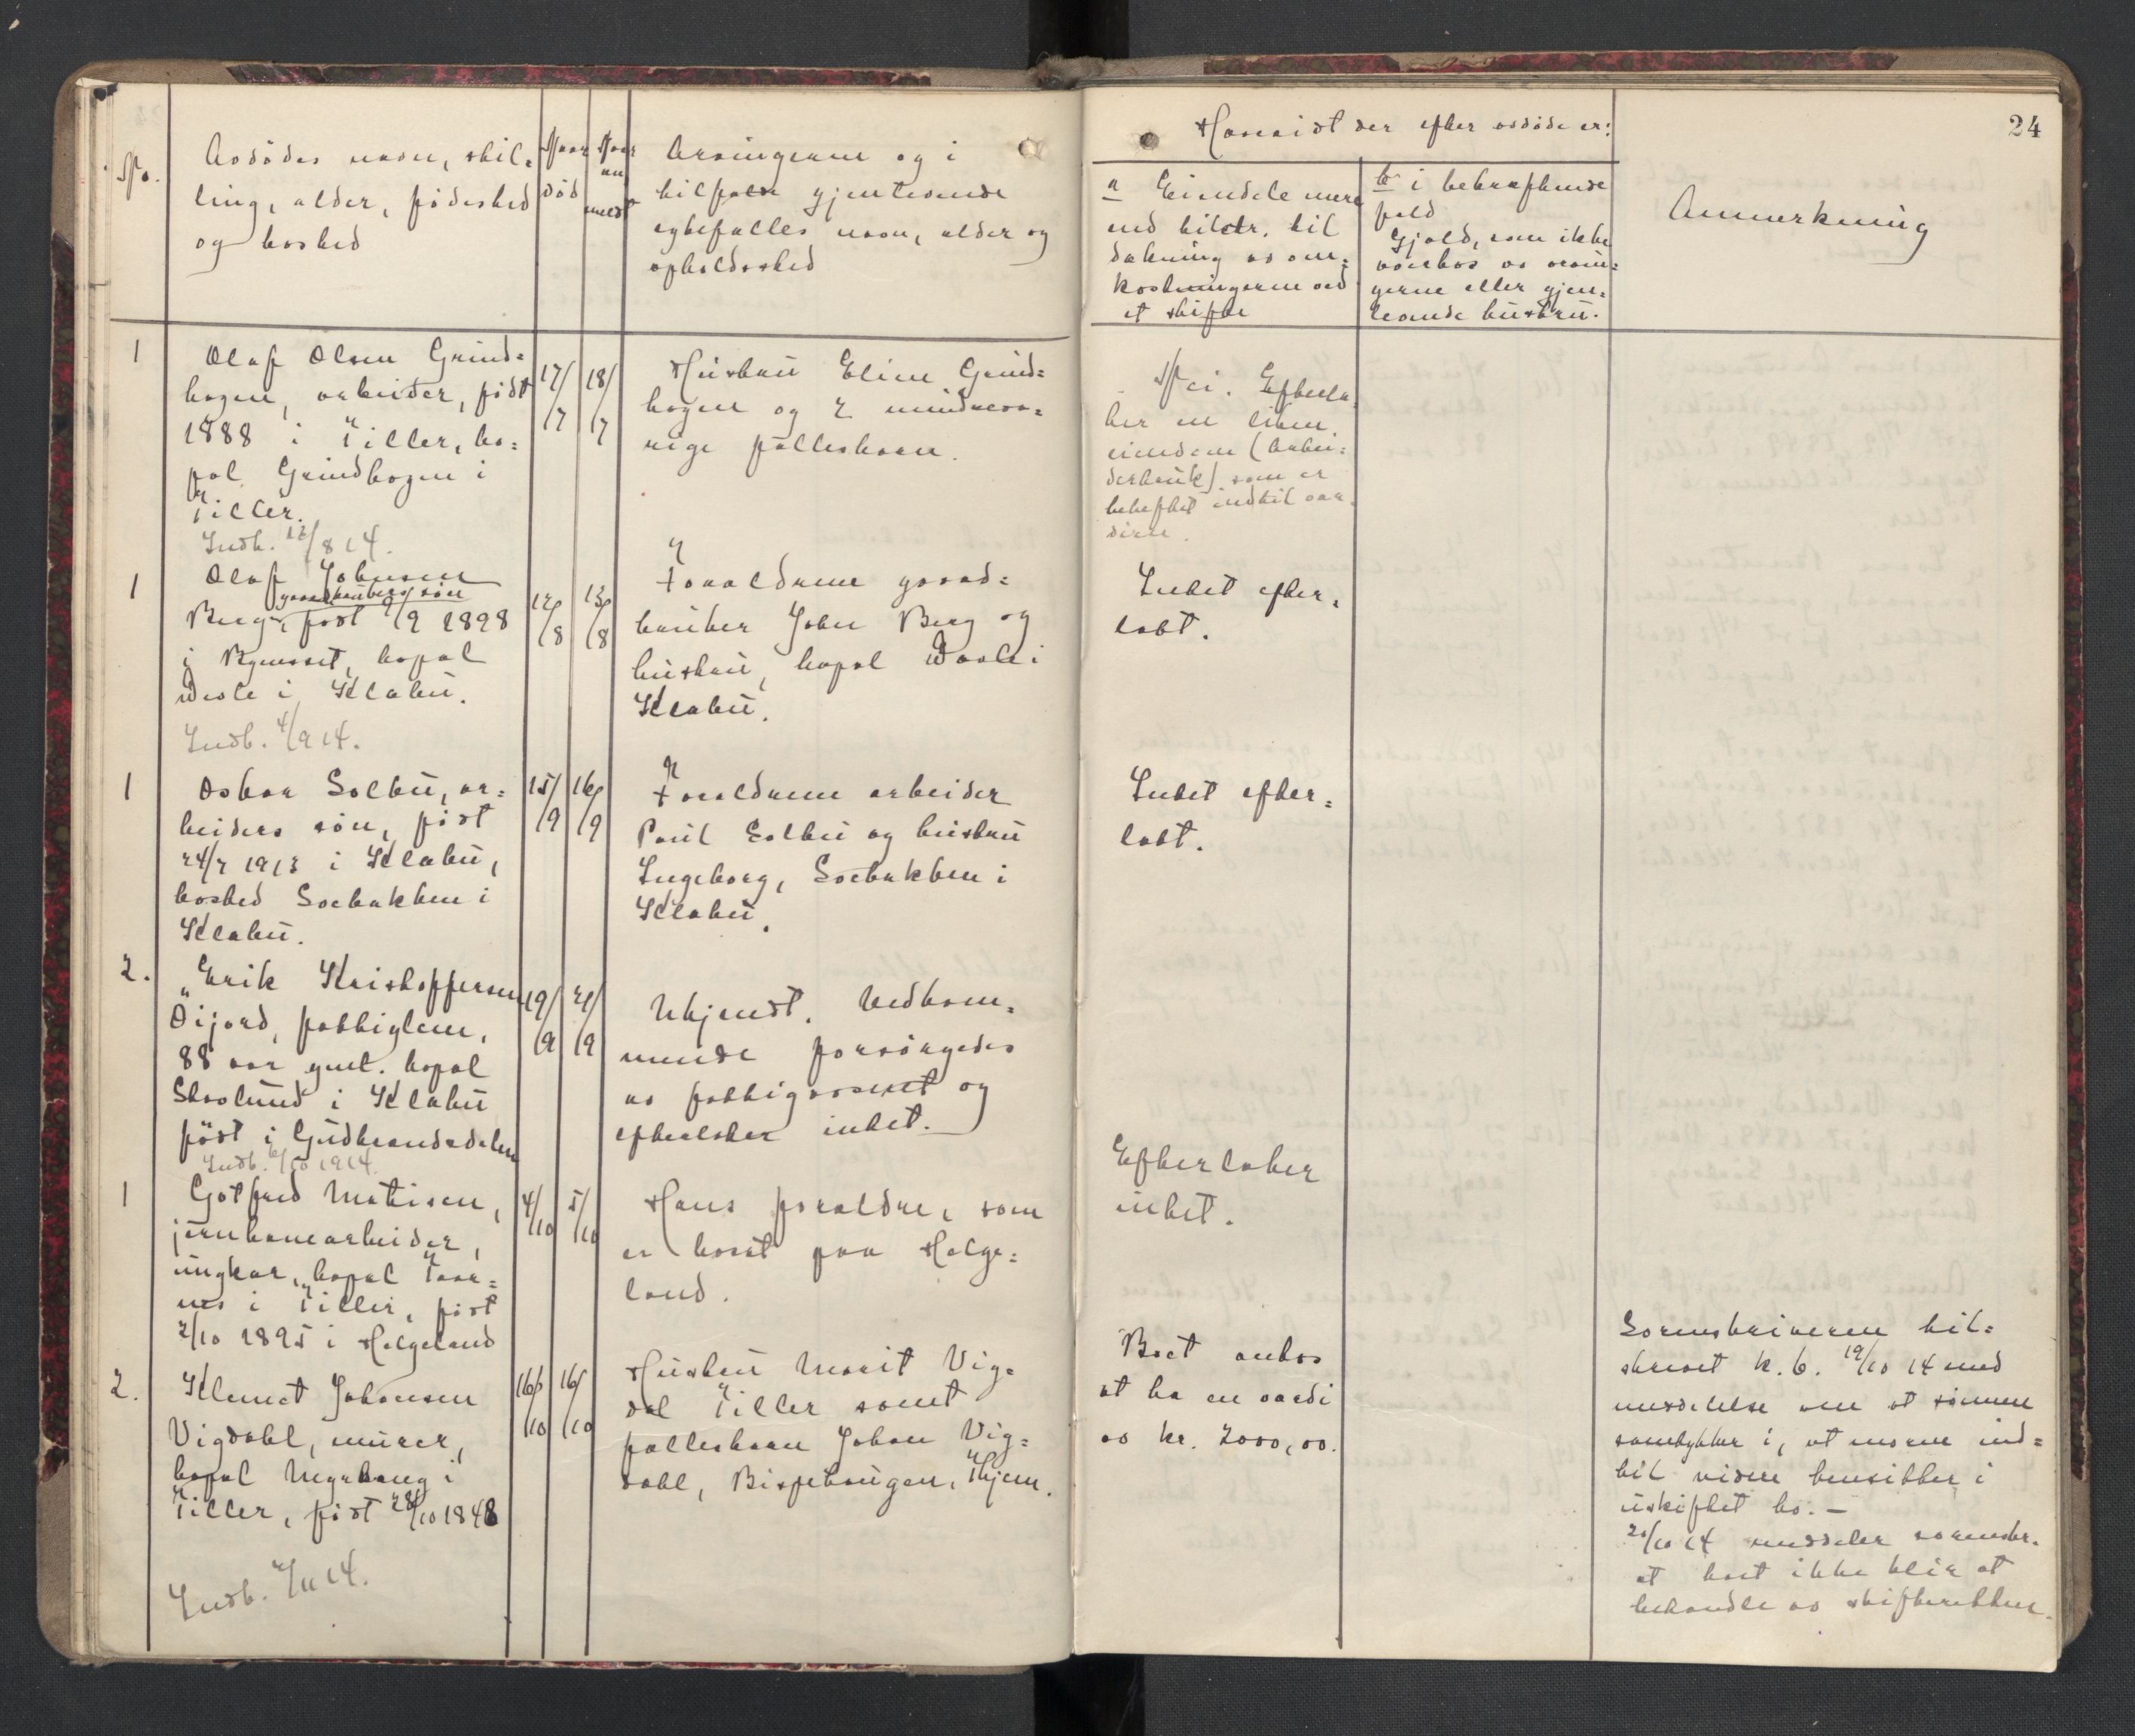 24
No.
Avdødes navn, stil-
ling, alder, fødested
og bosted
Naar
død
Naar
an
meldt
Arvingerne og i
tilfælde gjenlevende
egtefælles navn, alder og
opholdssted
Hvorvidt der efter avdøde er:
a Eiendele mere
end tilstr. til
dækning av om-
kostningerne ved
et skifte
b i bekræftende
fald
Gjæld, som ikke
vedtas av arvin-
gerne eller gjen-
levende hustru.
Anmerkning
1
Olaf Olsen Grind-
haugen, arbeider, født
1888 i Tiller, bo-
pæl Grindhaugen i
Tiller.
Indb. 12/8 14.
17/
7
18/
7
Hustru Eline Grind-
haugen og 2 mindreaa-
rige fællesbarn.
Nei. Efterla-
ter en liten
eiendom (Arbei-
derbruk) som er
beheftet indtil vær-
dien.
1
Olaf Johnsen
gaardbrukers søn
Berg, født 9/9 1898
i Bynesset, bopæl
i Klæbu.
Indb. 4/9 14.
12/
8
13/
8
Forældrene gaard-
bruker John Berg og
hustru, bopæl
Klæbu.
Intet efter-
latt.
1
Oskar Solbu, ar-
beiders søn, født
24/7 1913 i Klæbu,
bosted Sorbakken i
Klæbu.
15/
9
16/
9
Forældrene arbeider
Paul Solbu og hustru
Ingeborg, Sorbakken i
Klæbu.
Intet efter-
latt.
2.
Erik Kristoffersen
Øijord, fattiglem,
88 aar gml. bopæl
Skoglund i Klæbu
født i Gudbrandsdalen
Indb. 6/10 1914.
19/
9
21/
9
Ukjendt. Vedkom-
mende forsørgedes
av fattigvæsnet og
efterlater intet.
1
Gotfred Matisen,
jernbanearbeider,
ungkar, bopæl Tor-
nes i Tiller, født
2/10 1895 i Helgeland
4/
10
5/
10
Hans forældre, som
er bosat paa Helge-
land.
Efterlater
intet.
2.
Klemet Johansen
Vigdahl, murer,
bopæl Nyhaug i
Tiller, født 28/10 1848
Indb. 2/11 14.
16/
10
16/
10
Hustru Marit Vig-
dal Tiller samt
fællesbarn Johan Vig-
dahl, Bispehaugen, Thjem.
Boet antas
at ha en værdi
av kr. 2000,00.
Sorenskriveren til-
skrevet h. b. 19/10 14 med
meddelelse om at sønnen
samtykker i, at moren ind-
til videre hensitter i
uskiftet bo. –
20/10 14 meddeler sorenskr.
at boet ikke blir at
behandle av skifteretten.